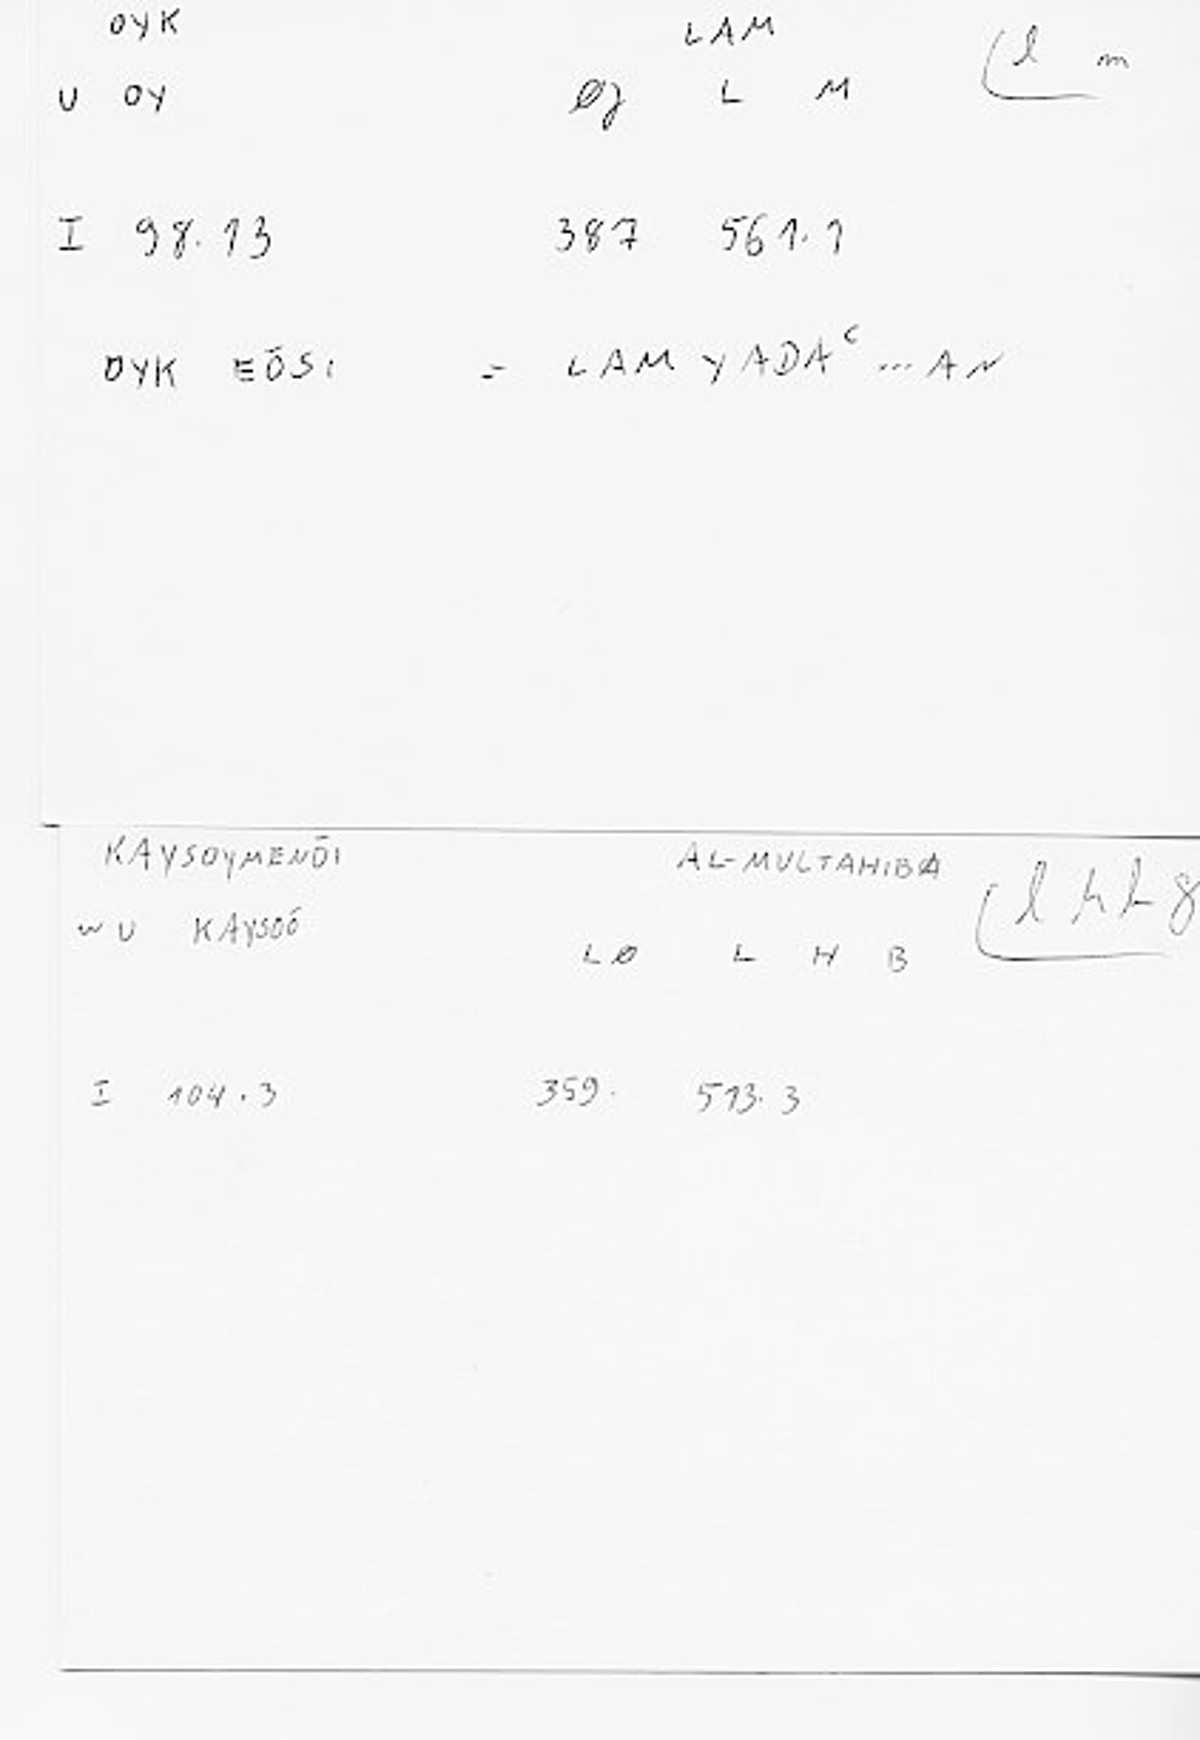 OYK LAM l m
U OY Øj L M
I 98.13 387 561.1
OYK EŌSI = LAM YADAᶜ ... AN
KAYSOYMENŌI AL-MULTAHIBA
W U KAYSOŌ LØ L H B l h b
I 104.3 359. 513.3